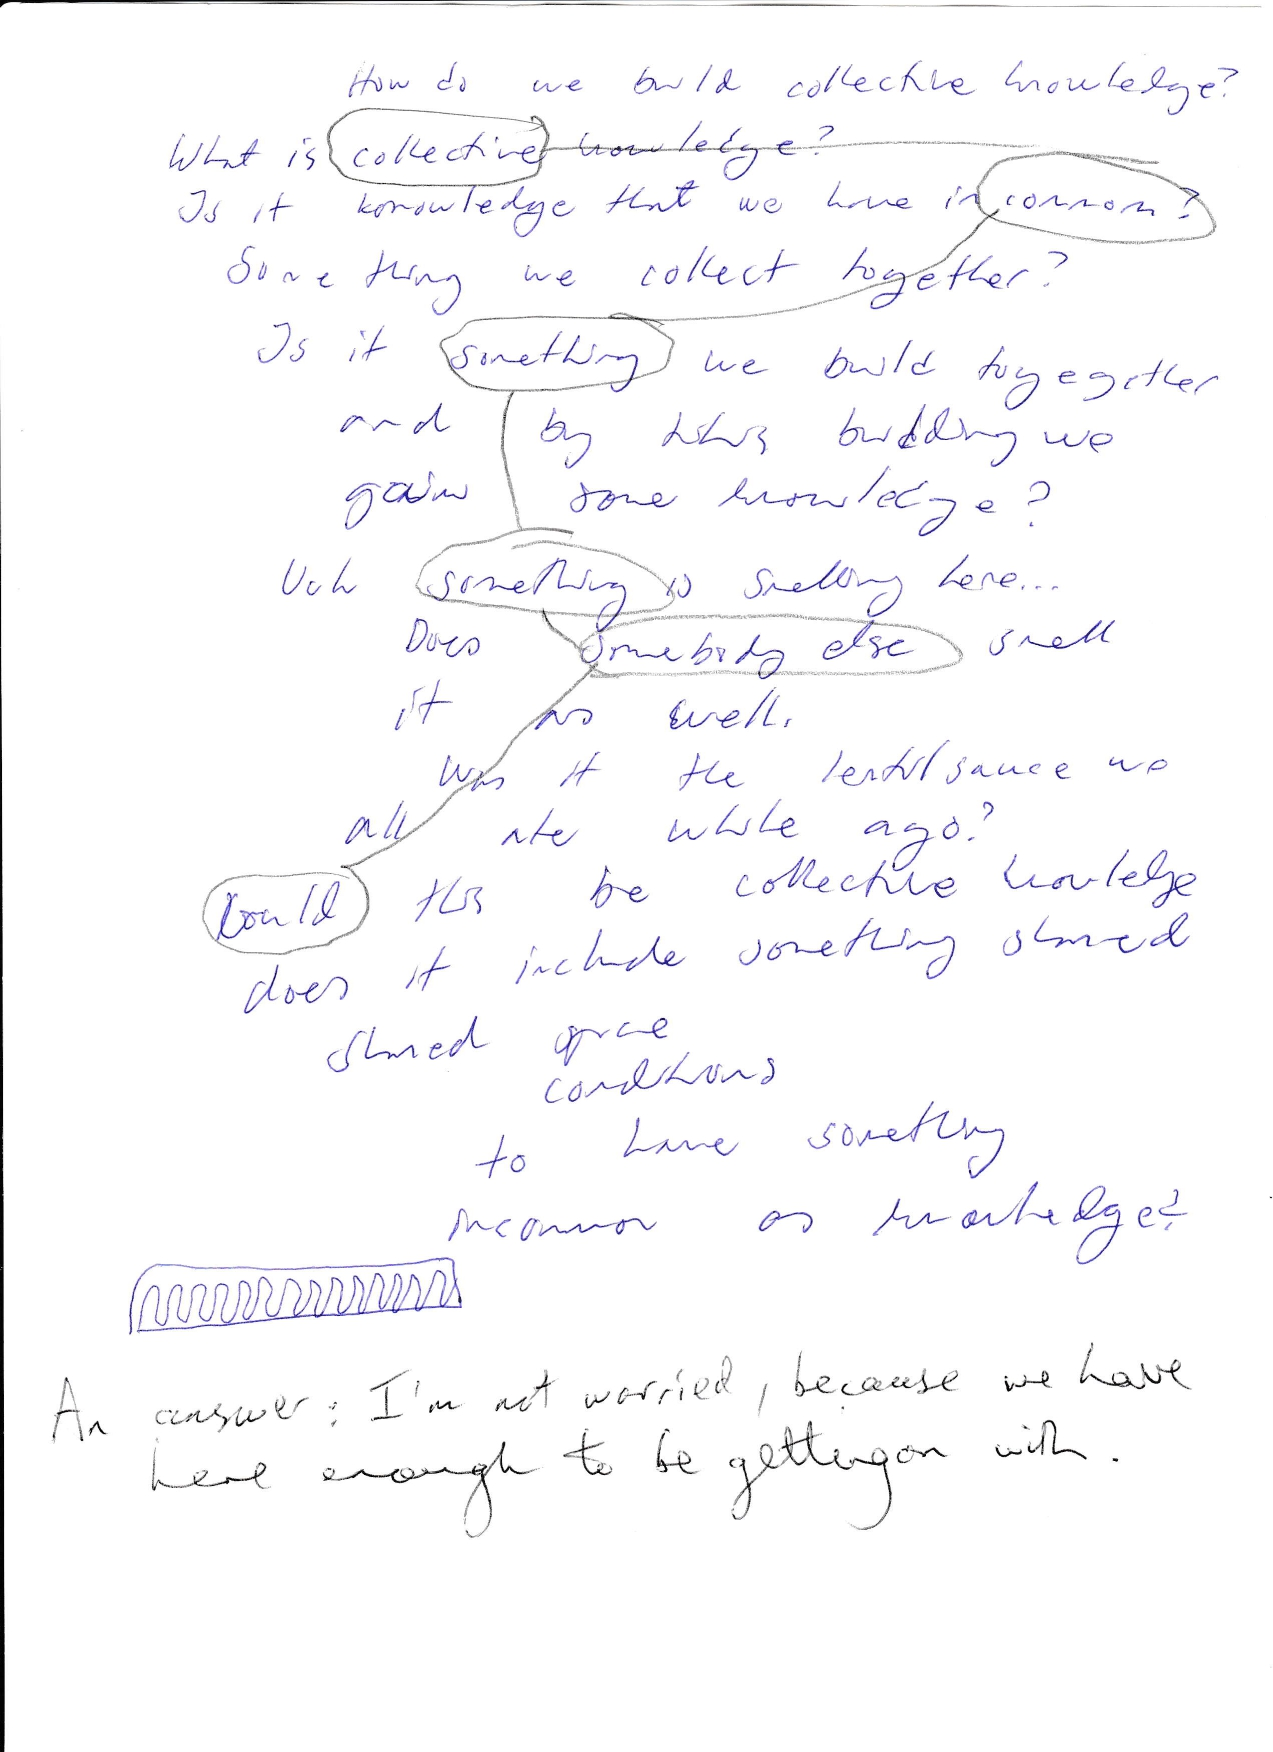 How do we build collective knowledge?
What is collective knowledge?
Is it konowledge that we have in common?
Something we collect together?
Is it something we build togegether
and by this building we
gain some knowledge?
Uuh something is smelling here...
Does somebody else smell
it as well.
Was it the lentilsauce we
all ate while ago?
Could this be collective knowledge
does it include something shared
shared space
conditions
to have something
incommon as knowledge?
An answer: I'm not worried, because we have
here enough to be gettingon with.